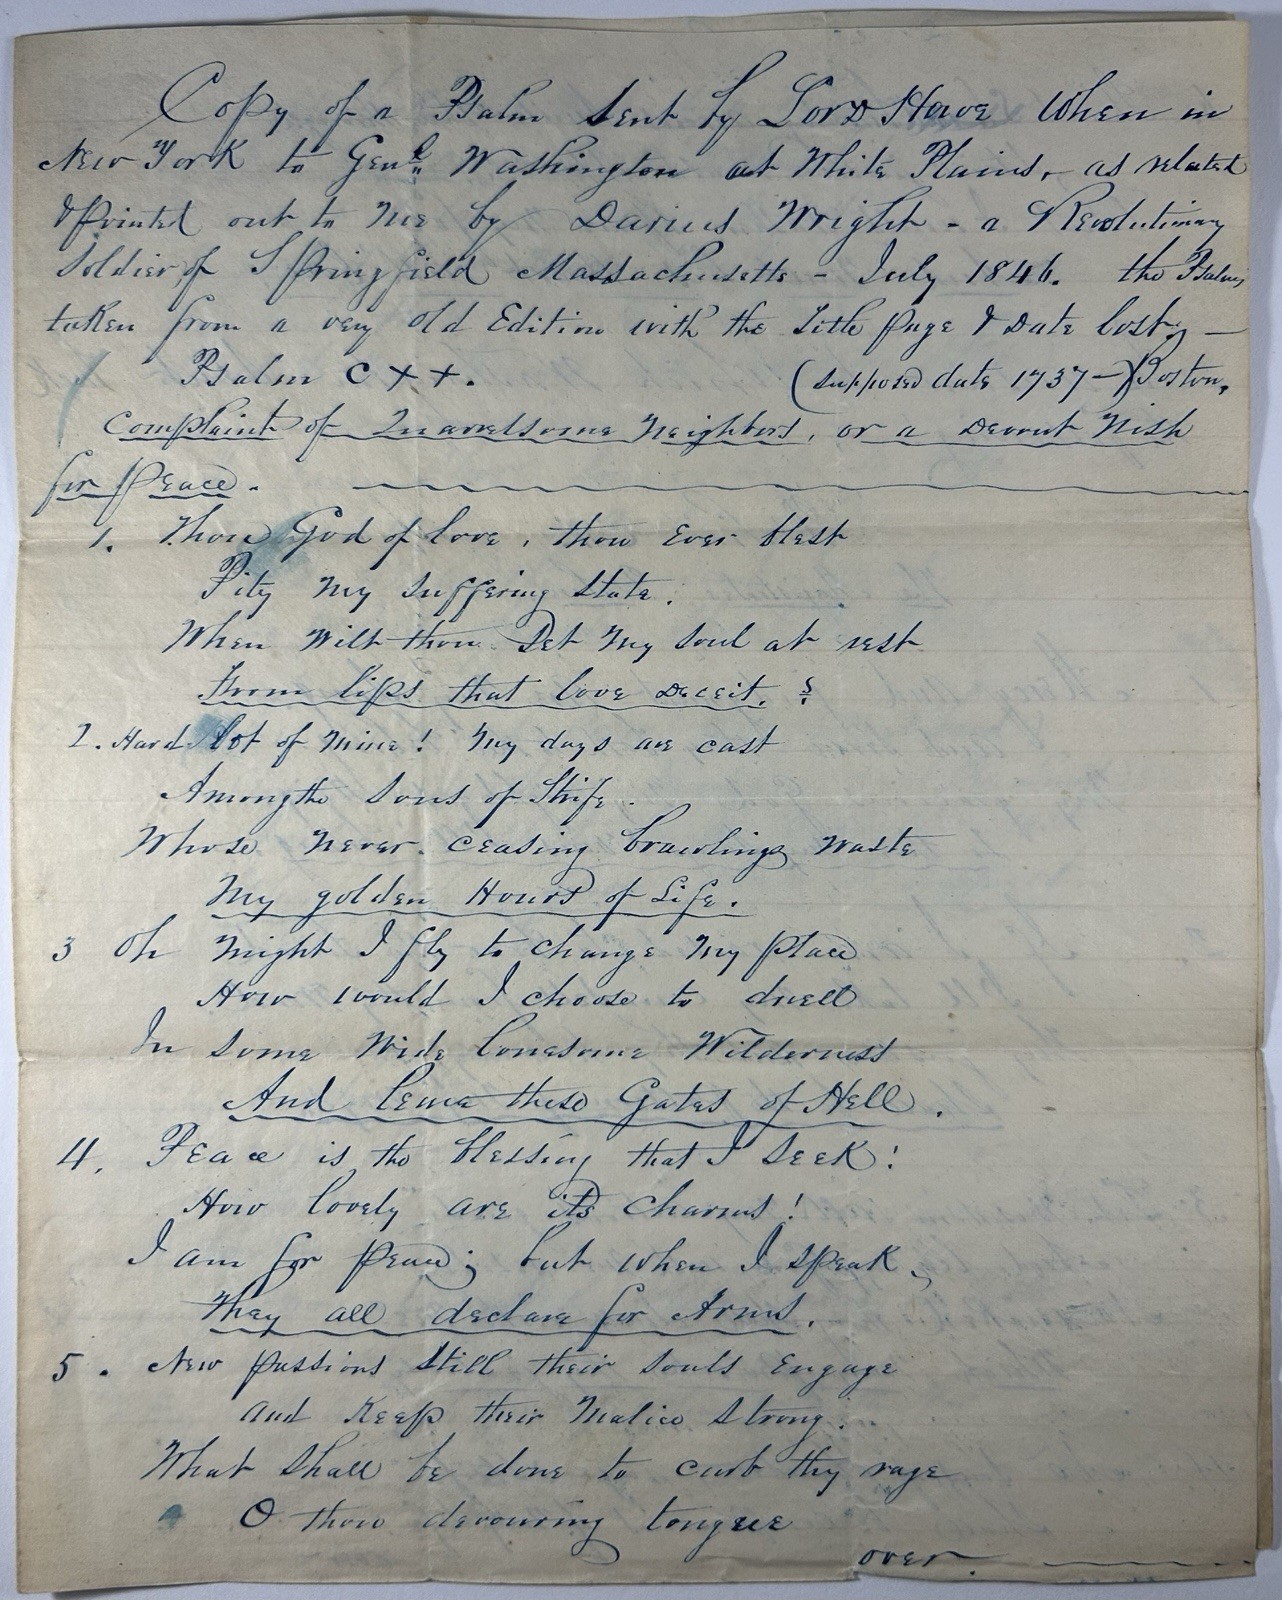 Copy of a Psalm Sent by Lord Howe When in
New York to Genl. Washington at White Plains, - as related
& Printed out to Me by Darius Wright - a Revolutionary
Soldier of Springfield Massachusetts - July 1846. the Psalms
taken from a very old Edition with the Title page & Date lost, —
Psalm C X X. (supposed date 1737 —) Boston,
Complaint of Quarrelsome Neighbors, or a Devout Wish
for Peace.
1. Thou God of love, thou Ever blest
Pity My suffering State;
When Wilt thou Set My Soul at rest
From lips that love Deceit. ?
2. Hard lot of Mine! My days are cast
Among the Sons of Strife.
Whose Never ceasing brawlings Waste
My golden Hours of Life.
3 Oh Might I fly to change My place
How would I choose to dwell
In some Wide lonesome Wilderness
And leave these Gates of Hell.
4. Peace is the blessing that I Seek!
How lovely are its Charms!
I am for Peace; but when I speak,
They all declare for Arms.
5. New passions Still their souls Engage
and Keep their Malice Strong.
What Shall be done to curb thy rage
O thou devouring tongue
over.